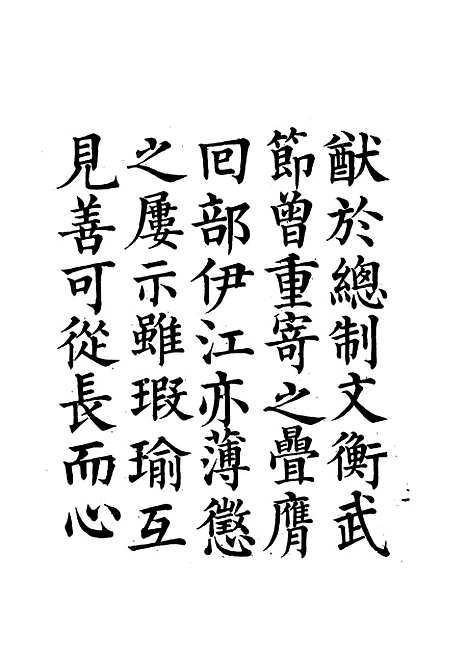 猷於總制文衡武
節曾重寄之疊膺
回部伊江亦薄懲
之屢示雖瑕瑜互
見善可從長而心